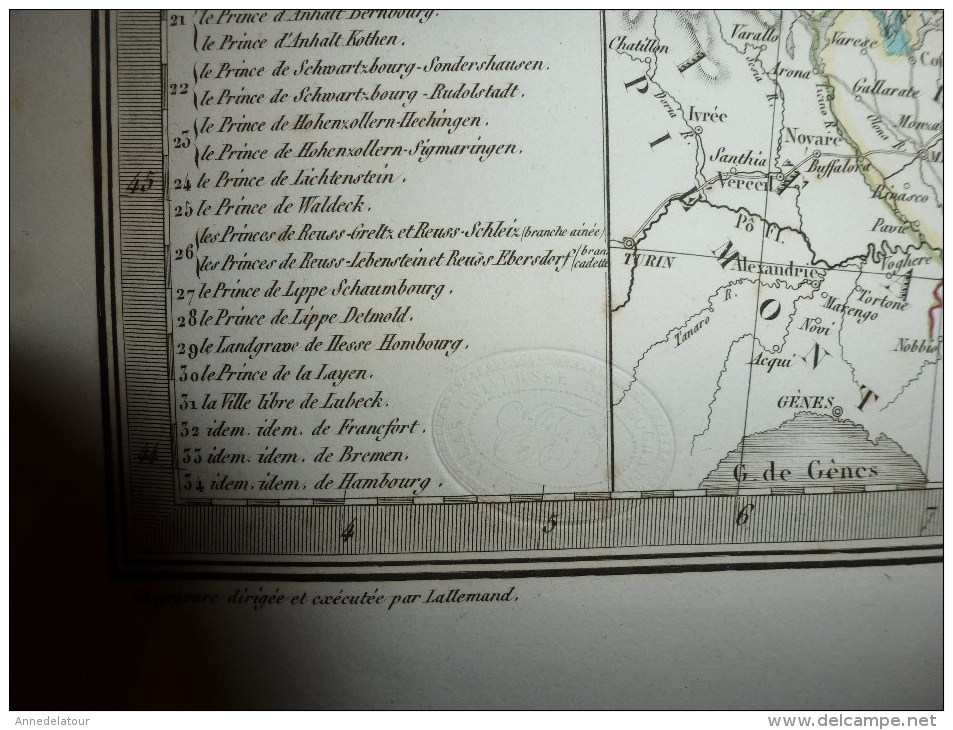 21 le Prince d'Anhalt Bernbourg.
le Prince d'Anhalt Kothen.
22 le Prince de Schwartzbourg-Sondershausen.
le Prince de Schwartzbourg-Rudolstadt.
23 le Prince de Hohenzollern-Hechingen.
le Prince de Hohenzollern-Sigmaringen.
24 le Prince de Lichtenstein.
25 le Prince de Waldeck.
26 les Princes de Reuss-Greltz et Reuss-Schleiz (branche ainée)
les Princes de Reuss-Lebenstein et Reuss Ebersdorf (bran. cadette
27 le Prince de Lippe Schaumbourg.
28 le Prince de Lippe Detmold.
29 le Landgrave de Hesse Hombourg.
30 le Prince de la Layen.
31 la Ville libre de Lubeck.
32 idem. idem. de Francfort.
33 idem. idem. de Bremen.
34 idem. idem. de Hambourg.
45
44
4
5
6
7
Chatillon
Varallo
Varese
Sesia R.
Arona
Ticino R.
Gallarate
Olona
Monza
Doria R.
Ivrée
Novare
Buffalora
Santhia
Verceil
Binasco
Pavie
PIEMONT
Pô Fl.
TURIN
Alexandrie
Voghere
Tortone
Marengo
Tanaro R.
Novi
Acqui
Nobbio
GÊNES
G. de Gênes
gravure dirigée et exécutée par Lallemand.
Annedelatour
www.delcampe.net